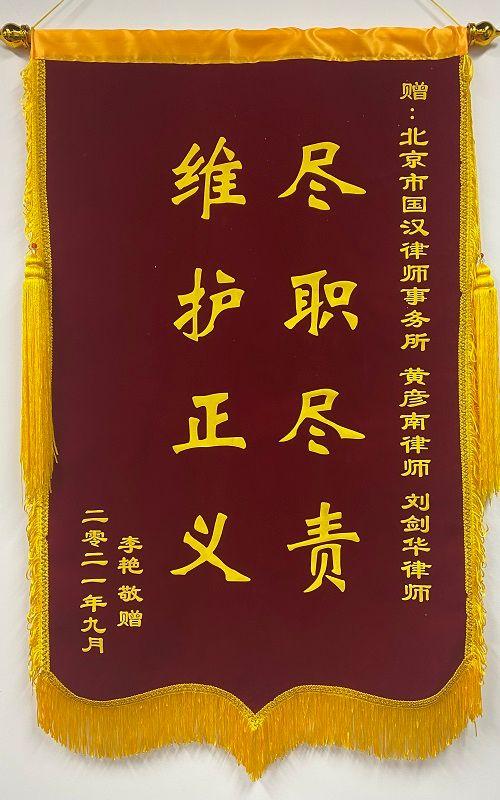 赠：北京市国汉律师事务所 黄彦南律师 刘剑华律师
尽职尽责
维护正义
李艳 敬赠
二零二一年九月